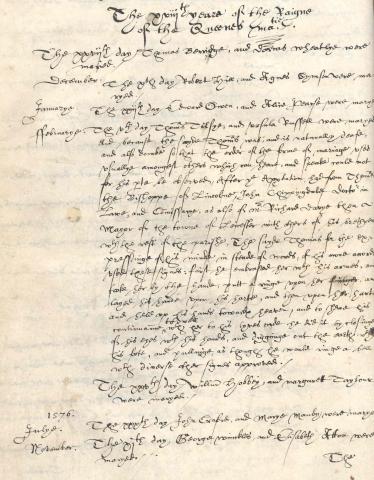 The xviijth yeare of the Raigne
of the Queenes Matie.
The xxviijth day Thomas and were
maryed.
December. The vth day Robert Hill, and Agnes Symson were, mar
ryed.
Januarye. The day Edward Owen, and were marye
ffebruarye. The vth day Thoms Tilsye, and Ursula Russell were, maryed
and because the sayde Thomas was, and is naturally deafe,
and also dumbe so that the order of the forme of mariage used
usually amongest others which can heare, and speake could not
for his parte be observed, after the approbation had from Thomas
the Bishoppe of Lincolne, John Chippendale doctor in
Lawe, and Comissarye, as also of mr Richard Davye then
Mayor of the towne of Leicester with others of his brethren
with the rest of the parishe, The sayde Thomas for the ex
pressinge of his minde in steade of words, of his owne accorde
used these signes: first he embraced her with his armes, and
tooke her by the hande, putt a ringe upon her finger, and
layde his hande upon his harte, and then upon her harte
and held up his handes towarde heaven, and to shew his
continuance to dwell with her to his lyves ende he did it by closinge
of his eyes with his hands, and digginge out the earth with
his fote, and pullinge as though he would ringe a bell
with diverse other signes approved.
The day William Hobby, and margaret Taylour
were maryed.
1576.
Julye. The day John and Marye were, marye
November. The xjth day George and Elisabeth were
maryed.
The